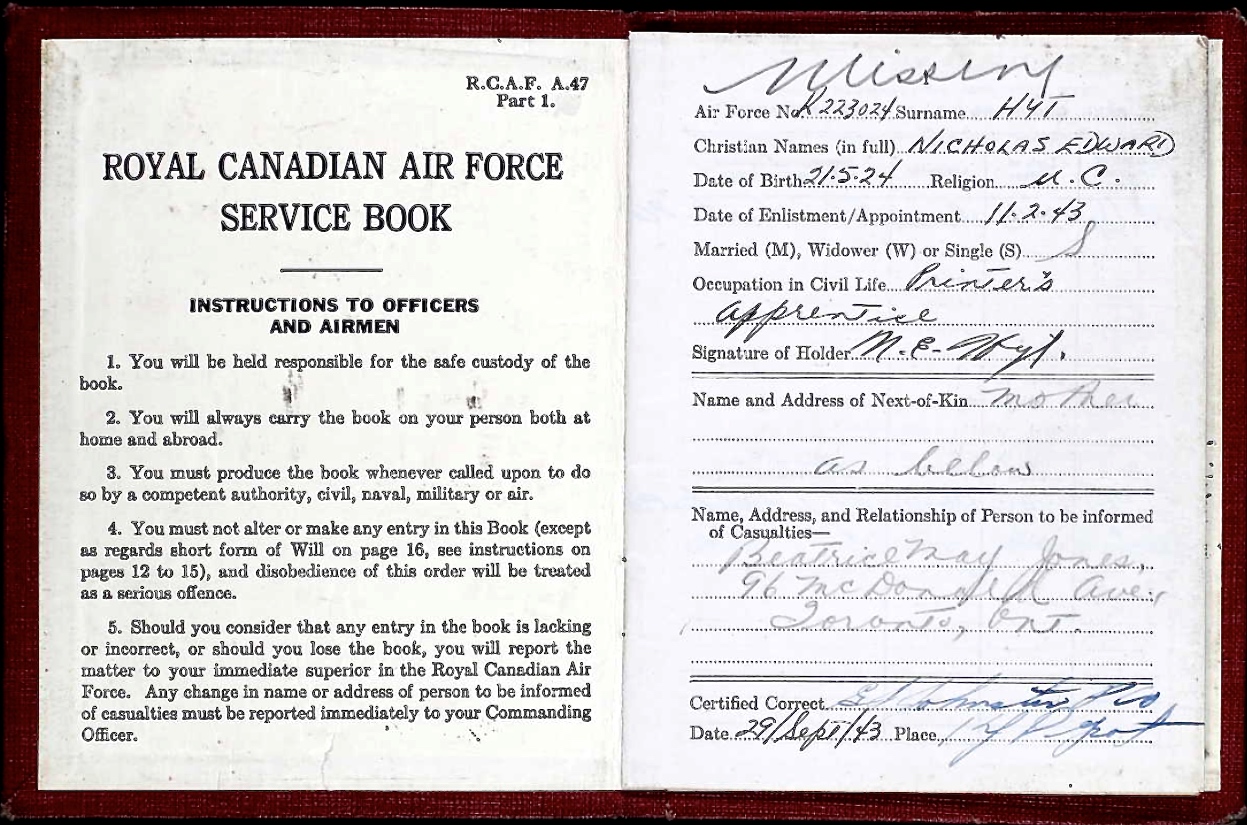 R.C.A.F. A.47
Part 1.
ROYAL CANADIAN AIR FORCE
SERVICE BOOK
INSTRUCTIONS TO OFFICERS
AND AIRMEN
1. You will be held responsible for the safe custody of the
book.
2. You will always carry the book on your person both at
home and abroad.
3. You must produce the book whenever called upon to do
so by a competent authority, civil, naval, military or air.
4. You must not alter or make any entry in this Book (except
as regards short form of Will on page 16, see instructions on
pages 12 to 15), and disobedience of this order will be treated
as a serious offence.
5. Should you consider that any entry in the book is lacking
or incorrect, or should you lose the book, you will report the
matter to your immediate superior in the Royal Canadian Air
Force. Any change in name or address of person to be informed
of casualties must be reported immediately to your Commanding
Officer.
Missing
Air Force No. R 223024 Surname HYT
Christian Names (in full) NICHOLAS EDWARD
Date of Birth 21.5.24 Religion U.C.
Date of Enlistment/Appointment 11.2.43
Married (M), Widower (W) or Single (S) S
Occupation in Civil Life Printer's
apprentice
Signature of Holder N.E. Hyt.
Name and Address of Next-of-Kin Mother
as below
Name, Address, and Relationship of Person to be informed
of Casualties—
Beatrice May Jones,
96 McDonell Ave.,
Toronto, Ont.
Certified Correct
Date 29/Sept/43 Place